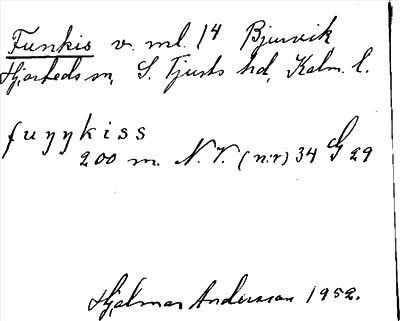 Funkis v. ml. 14 Bjursvik
Hjorteds sn, S. Tjusts hd, Kalm. l.
fuŋŋkiss
200 m. N.V. (nr) 34 G 29
Hjalmar Andersson 1952.